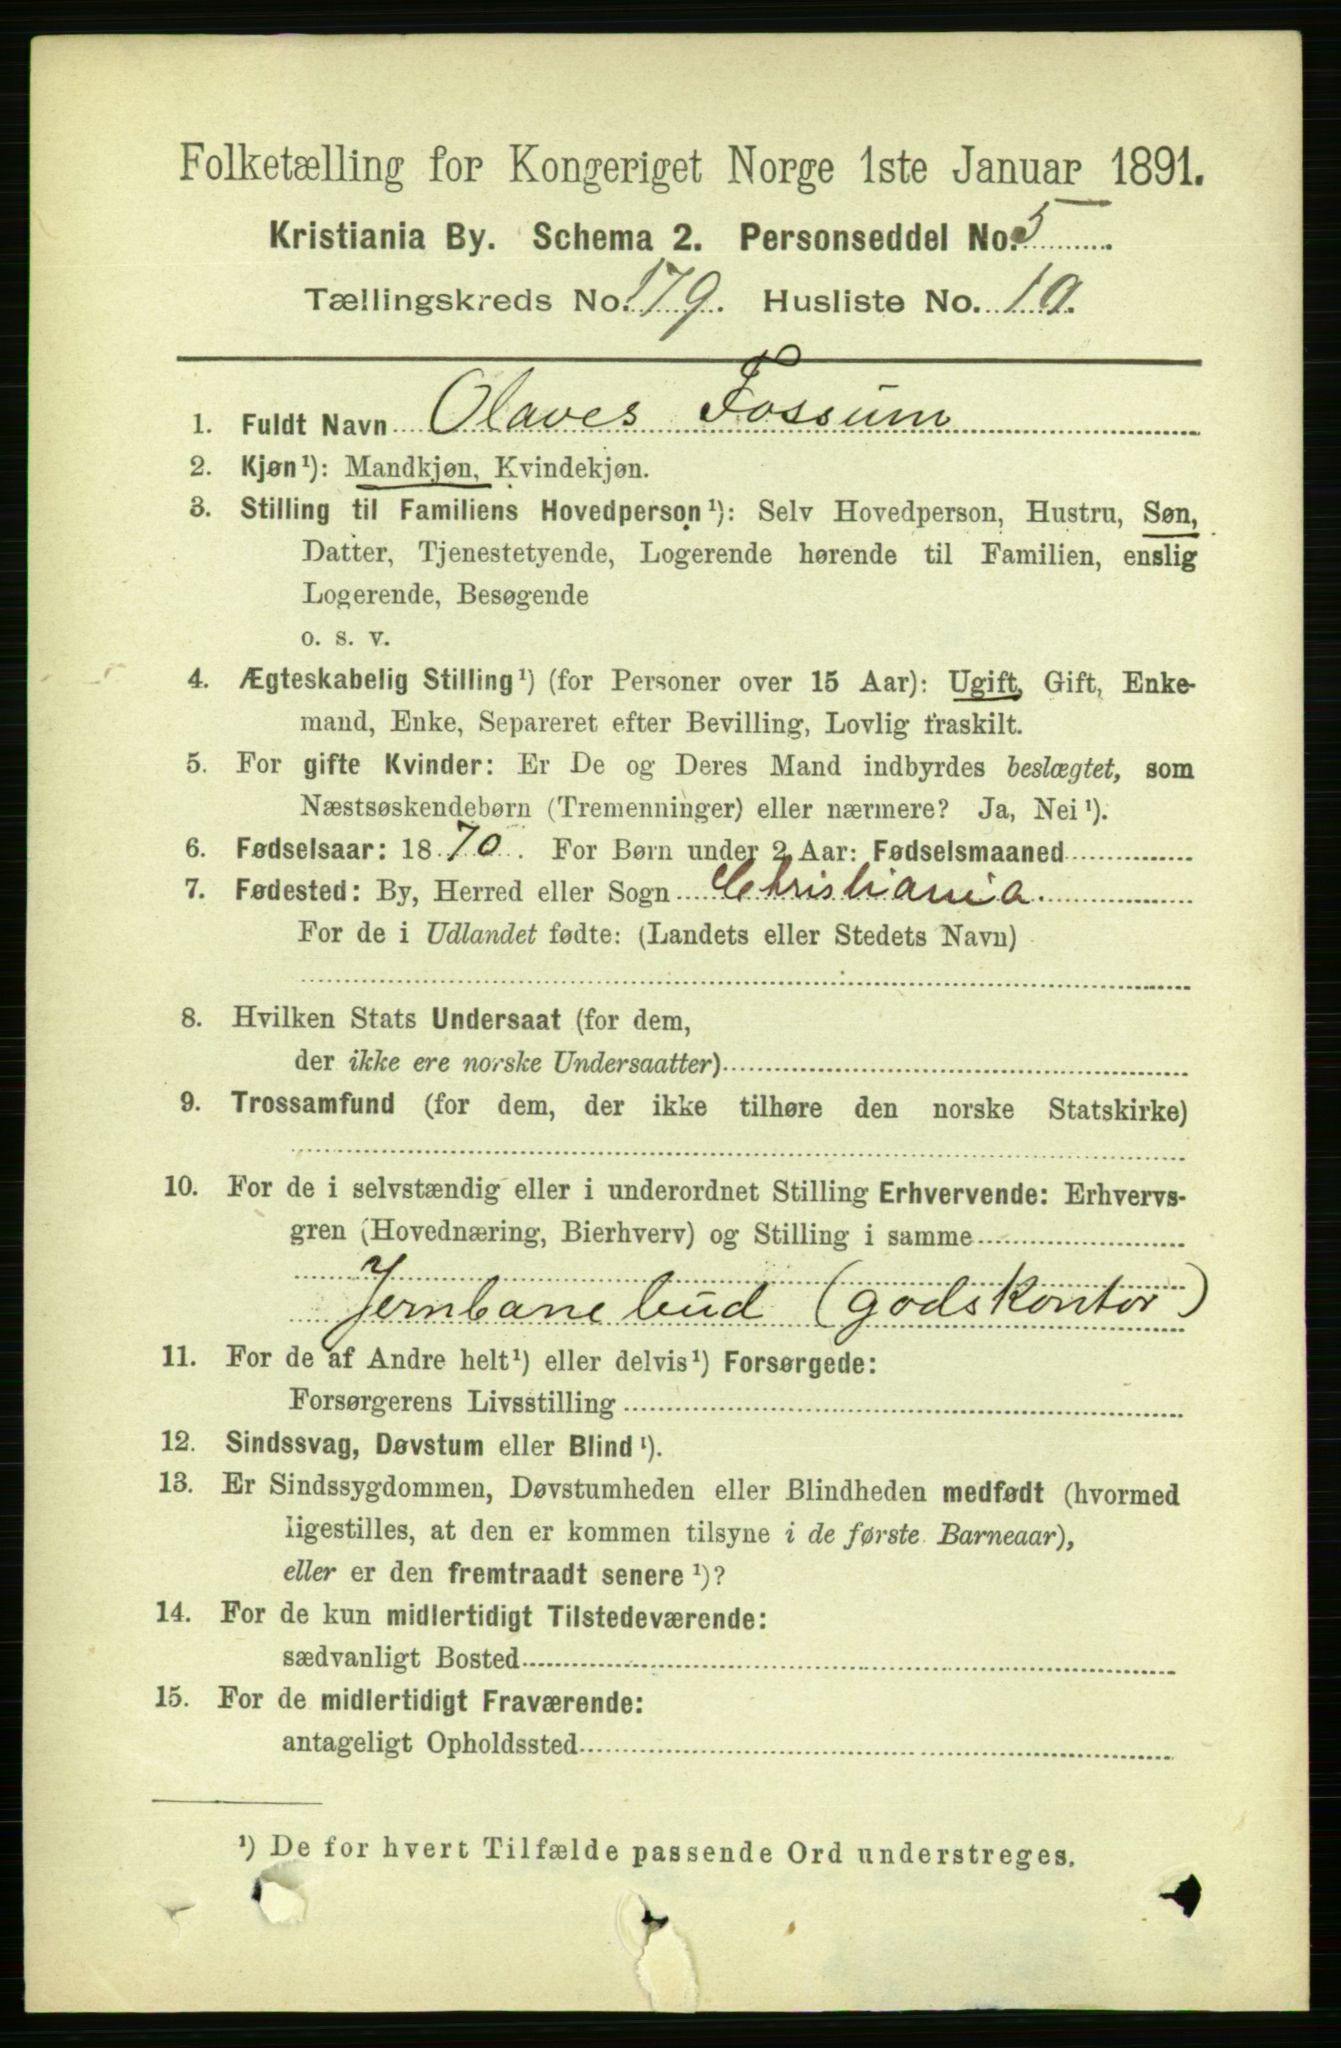 Folketælling for Kongeriget Norge 1ste Januar 1891.
Kristiania By. Schema 2. Personseddel No. 5
Tællingskreds No. 179. Husliste No. 19.
1. Fuldt Navn Olaves Fossum
2. Kjøn¹): Mandkjøn, Kvindekjøn.
3. Stilling til Familiens Hovedperson¹): Selv Hovedperson, Hustru, Søn,
Datter, Tjenestetyende, Logerende hørende til Familien, enslig
Logerende, Besøgende
o. s. v.
4. Ægteskabelig Stilling¹) (for Personer over 15 Aar): Ugift, Gift, Enke-
mand, Enke, Separeret efter Bevilling, Lovlig fraskilt.
5. For gifte Kvinder: Er De og Deres Mand indbyrdes beslægtet, som
Næstsøskendebørn (Tremenninger) eller nærmere? Ja, Nei¹).
6. Fødselsaar: 1870. For Børn under 2 Aar: Fødselsmaaned
7. Fødested: By, Herred eller Sogn Christiania.
For de i Udlandet fødte: (Landets eller Stedets Navn)
8. Hvilken Stats Undersaat (for dem,
der ikke ere norske Undersaatter)
9. Trossamfund (for dem, der ikke tilhøre den norske Statskirke)
10. For de i selvstændig eller i underordnet Stilling Erhvervende: Erhvervs-
gren (Hovednæring, Bierhverv) og Stilling i samme
Jernbanebud (godskontor)
11. For de af Andre helt¹) eller delvis¹) Forsørgede:
Forsørgerens Livsstilling
12. Sindssvag, Døvstum eller Blind¹).
13. Er Sindssygdommen, Døvstumheden eller Blindheden medfødt (hvormed
ligestilles, at den er kommen tilsyne i de første Barneaar),
eller er den fremtraadt senere¹)?
14. For de kun midlertidigt Tilstedeværende:
sædvanligt Bosted
15. For de midlertidigt Fraværende:
antageligt Opholdssted
¹) De for hvert Tilfælde passende Ord understreges.